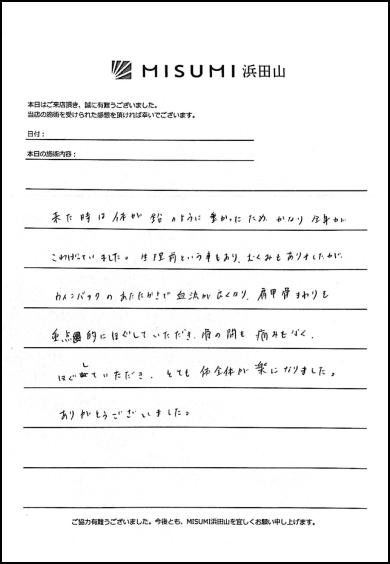 MISUMI 浜田山
本日はご来店頂き、誠に有難うございました。
当店の施術を受けられた感想を頂ければ幸いでございます。
日付：
本日の施術内容：
来た時は体が鉛のように重かったため、かなり全身が
こわばっていました。生理前という事もあり、むくみもありましたが、
カインパックのあたたかさで血流が良くなり、肩甲骨まわりも
重点的にほぐしていただき、骨の間も痛みもなく、
ほぐしていただき、とても体全体が楽になりました。
ありがとうございました。
ご協力有難うございました。今後とも、MISUMI浜田山を宜しくお願い申し上げます。